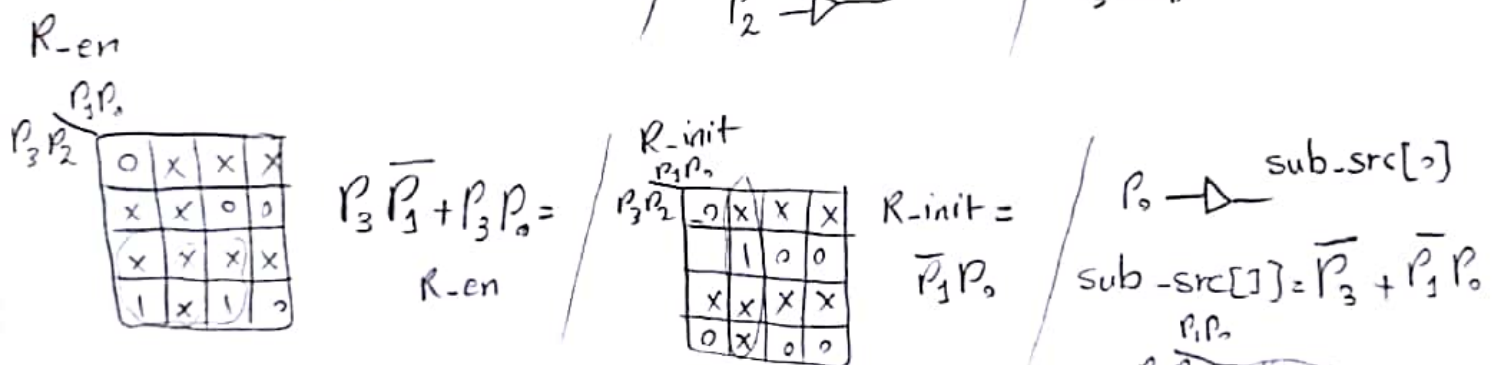 P₂
R_en
P₁P₀
P₃P₂
0 x x x
x x 0 0
x x x x
1 x 1 0
P₃P̅₁ + P₃P₀ =
R_en
R_init
P₁P₀
P₃P₂
0 x x x
1 0 0
x x x x
0 x 0 0
R_init =
P̅₁P₀
P₀ sub_src[0]
sub_src[1] = P̅₃ + P̅₁P₀
P₁P₀